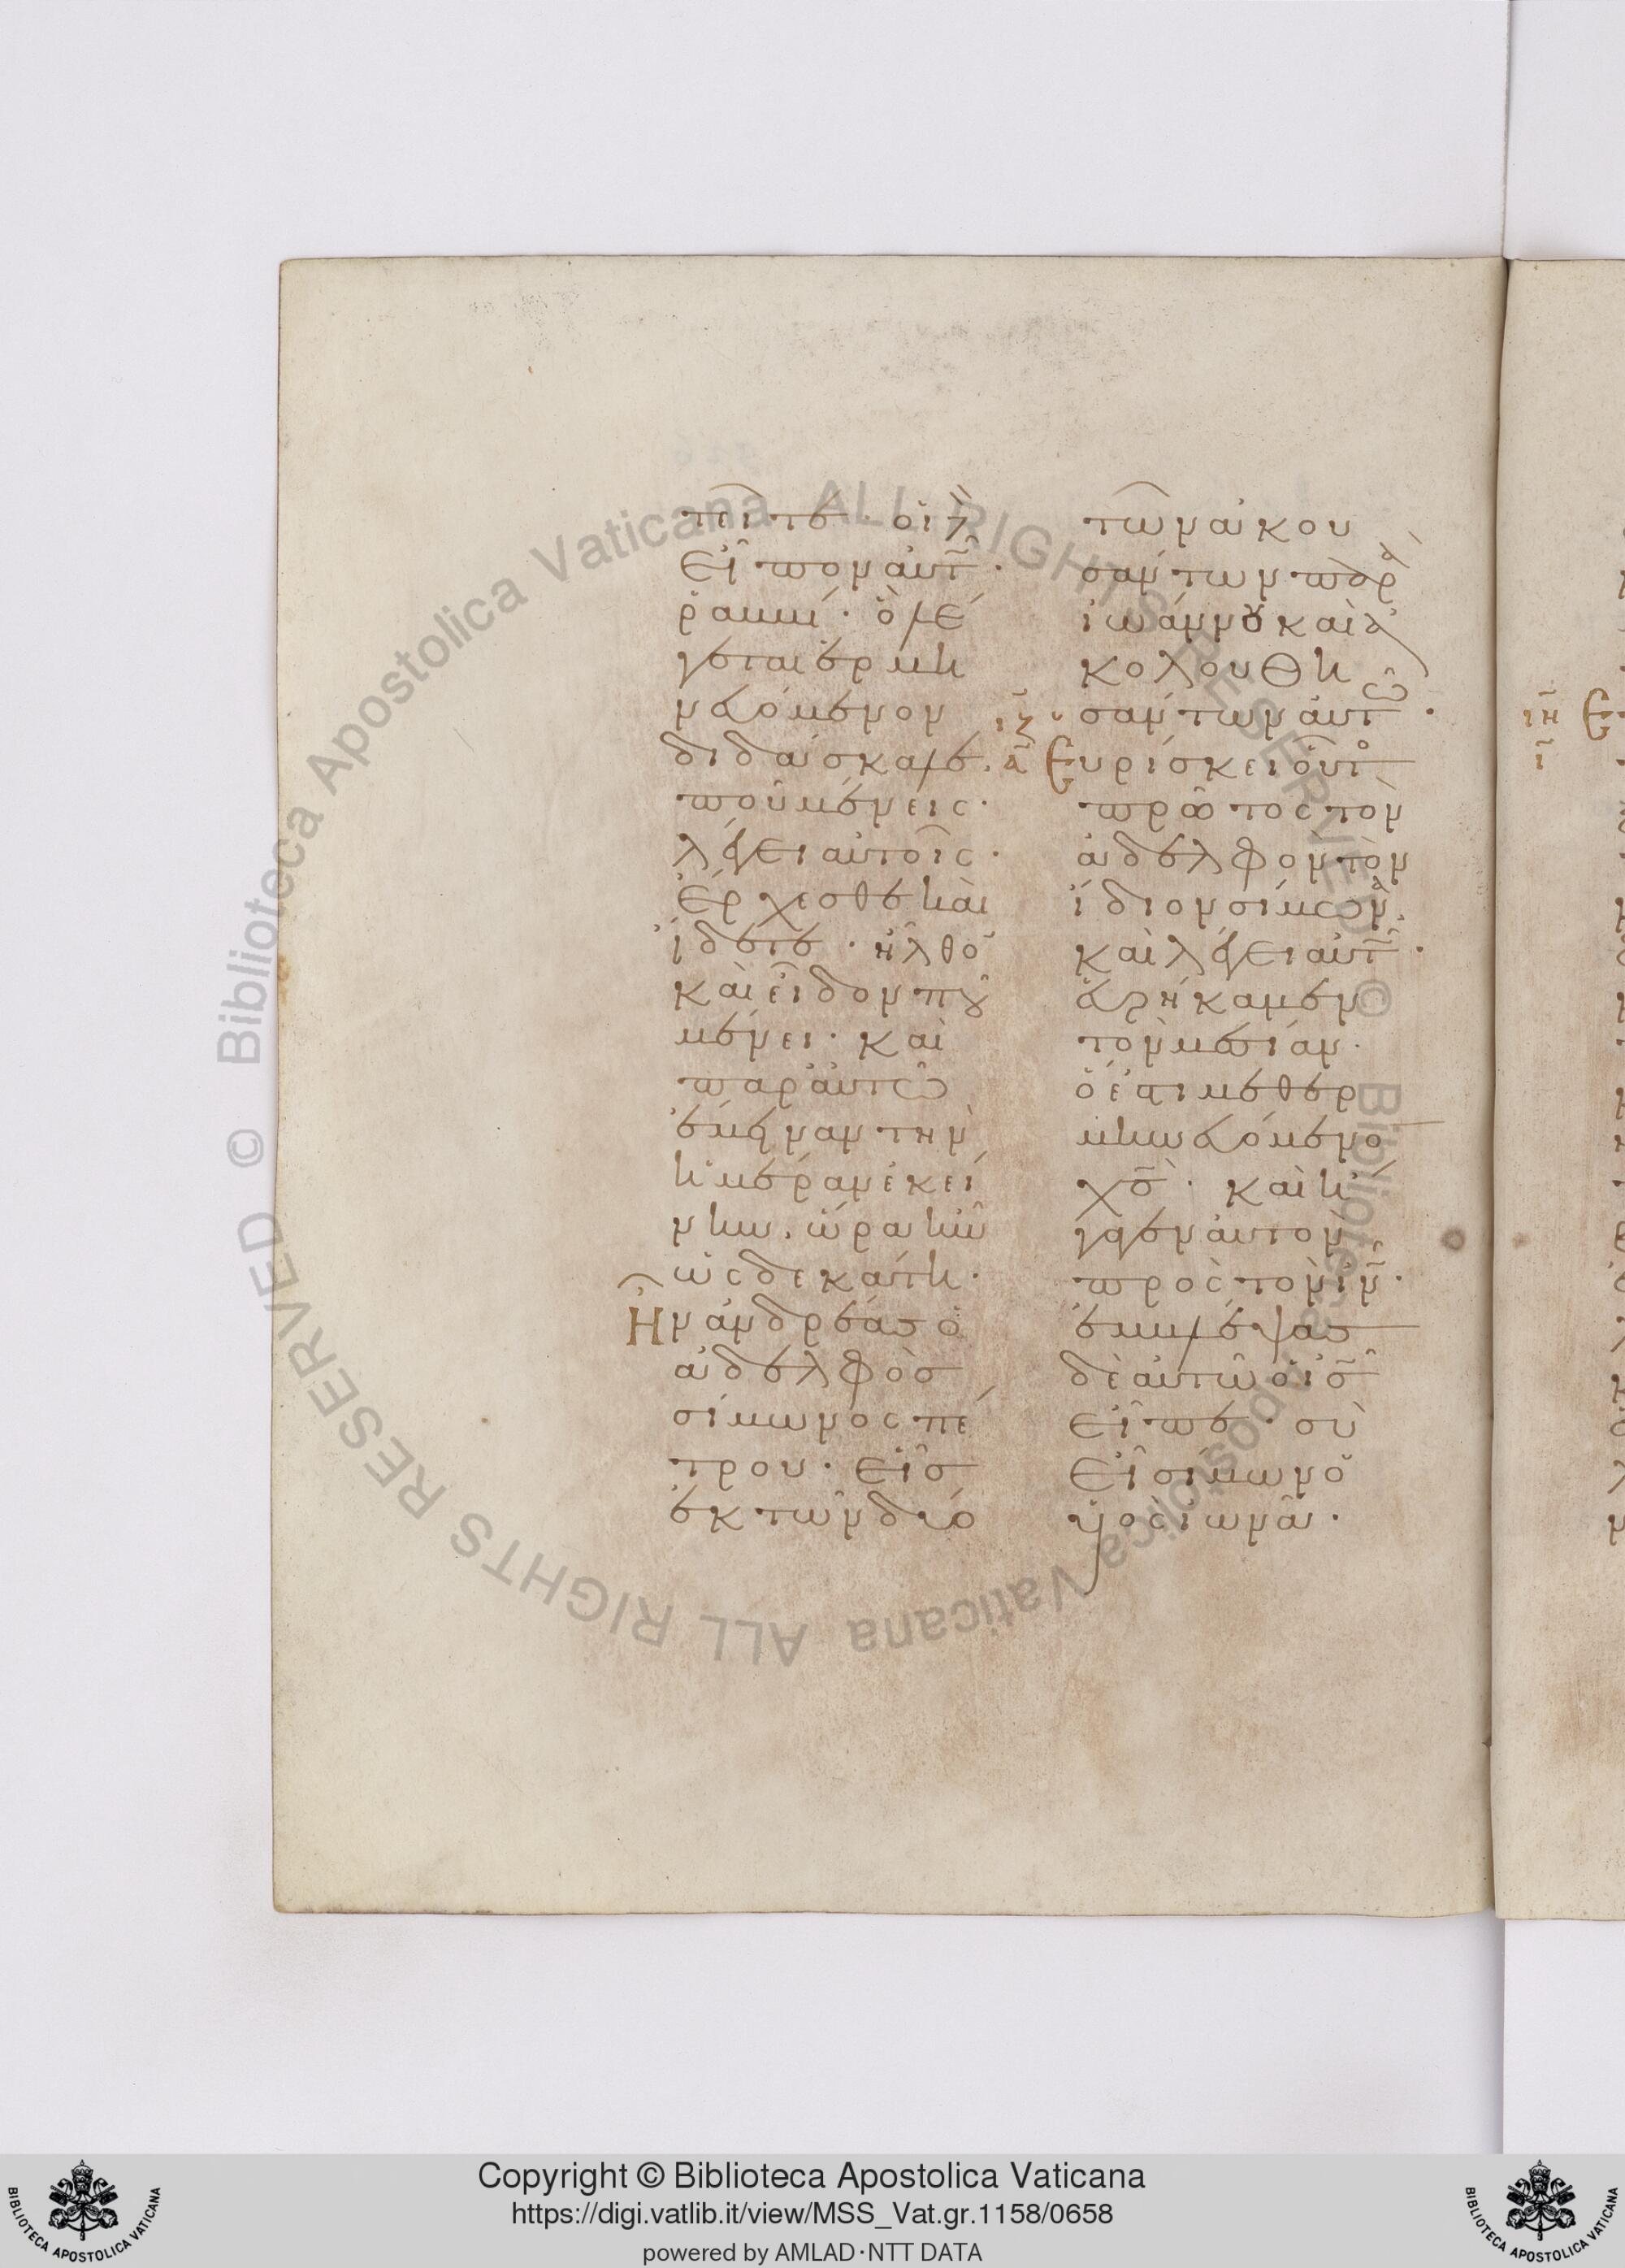 τεῖτε· οἱ δὲ
εἶπον αὐτ̄ῶ·
ῥαββί· ὃ λέ
γεται ἑρμη
νευόμενον
διδάσκαλε.
ποῦ μένεις·
λέγει αὐτοῖς·
ἔρχεσθε καὶ
ἴδετε· ἦλθο̄
καὶ εἶδον ποῦ
μένει· καὶ
παρ' αὐτῶ
ἔμειναν τὴν
ἡμέραν ἐκεί
νην. ὥρα ἦν
ὡς δεκάτη·
Ἦν ἀνδρέας ὁ
ἀδελφὸσ
σίμωνος πέ
τρου· εἷσ
ἐκ τῶν δύο
τῶν ἀκου
σάντων παρὰ
ἰωάννου καὶ ἀ
κολουθη
σάντων αὐτῶ·
ιζ
α Εὑρίσκει οὗτο
πρῶτος τὸν
ἀδελφὸν τὸν
ἴδιον σίμωνα.
καὶ λέγει αὐτῶ·
εὑρήκαμεν
τὸν μεσίαν·
ὅ ἐστι μεθερ
μηνευόμενο
χσ̄· καὶ ἤ
γαγεν αὐτὸν
πρὸς τὸν ιν̄·
ἐμβλέψας
δὲ αὐτῶ ὁ ισ̄
εἶπε· σὺ
εἶ σίμων ὁ
υἱὸς ἰωνᾶ·
ιη
ι
Copyright © Biblioteca Apostolica Vaticana
https://digi.vatlib.it/view/MSS_Vat.gr.1158/0658
powered by AMLAD·NTT DATA
BIBLIOTECA APOSTOLICA VATICANA
BIBLIOTECA APOSTOLICA VATICANA
© Biblioteca Apostolica Vaticana ALL RIGHTS RESERVED © Biblioteca Apostolica Vaticana ALL RIGHTS RESERVED